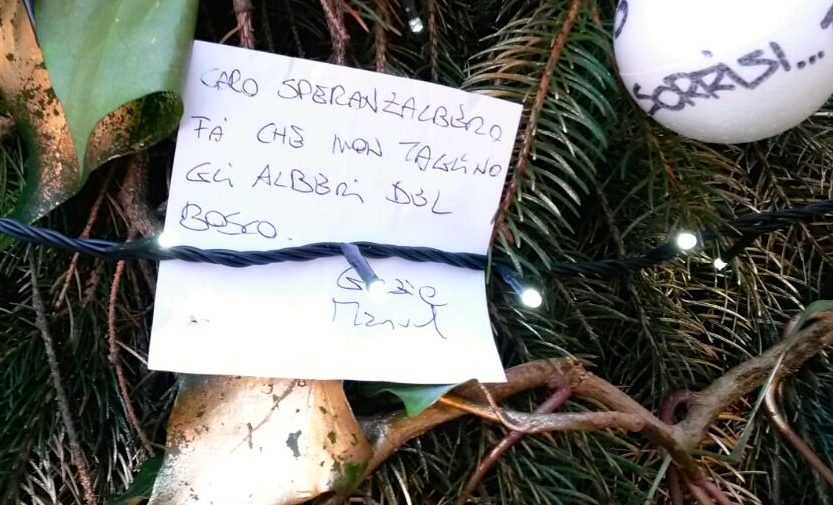 SORRISI...
CARO SPERANZALBERO
FA' CHE NON TAGLINO
GLI ALBERI DEL
BOSCO.
Grazie
Manuel